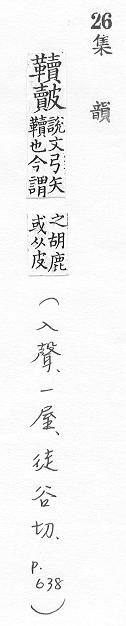 26 集韻
韇皾說文弓矢
韇也今謂
之胡鹿
或从皮
(入聲、一屋、徒谷切、p.638)